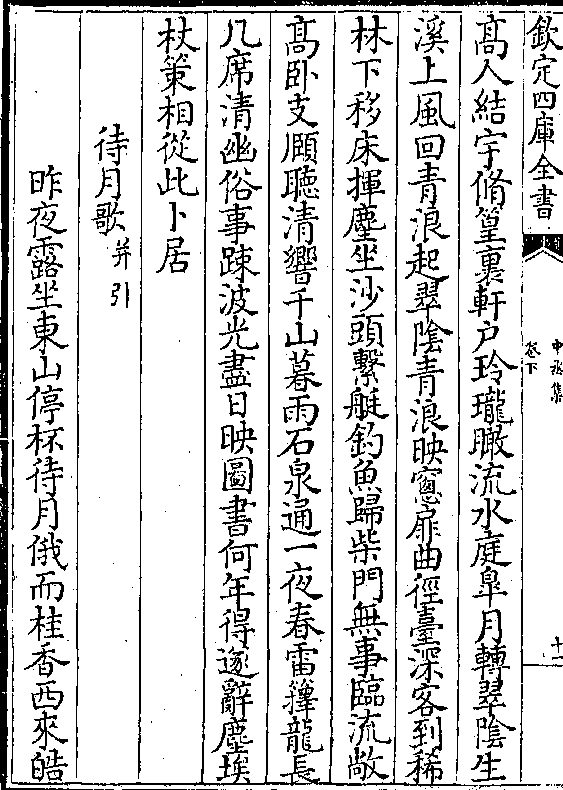 欽定四庫全書
中丞集
卷下
十一
髙人結宇脩篁裏軒户玲瓏瞰流水庭臯月轉翠陰生
溪上風回青浪起翠陰青浪映窻扉曲徑臺深客到稀
林下移床揮麈坐沙頭繫艇釣魚歸柴門無事臨流敞
髙卧支頥聽清響千山暮雨石泉通一夜春雷籜龍長
几席清幽俗事踈波光盡日映圖書何年得遂辭塵埃
杖策相從此卜居
待月歌并引
昨夜露坐東山停杯待月俄而桂香西來皓